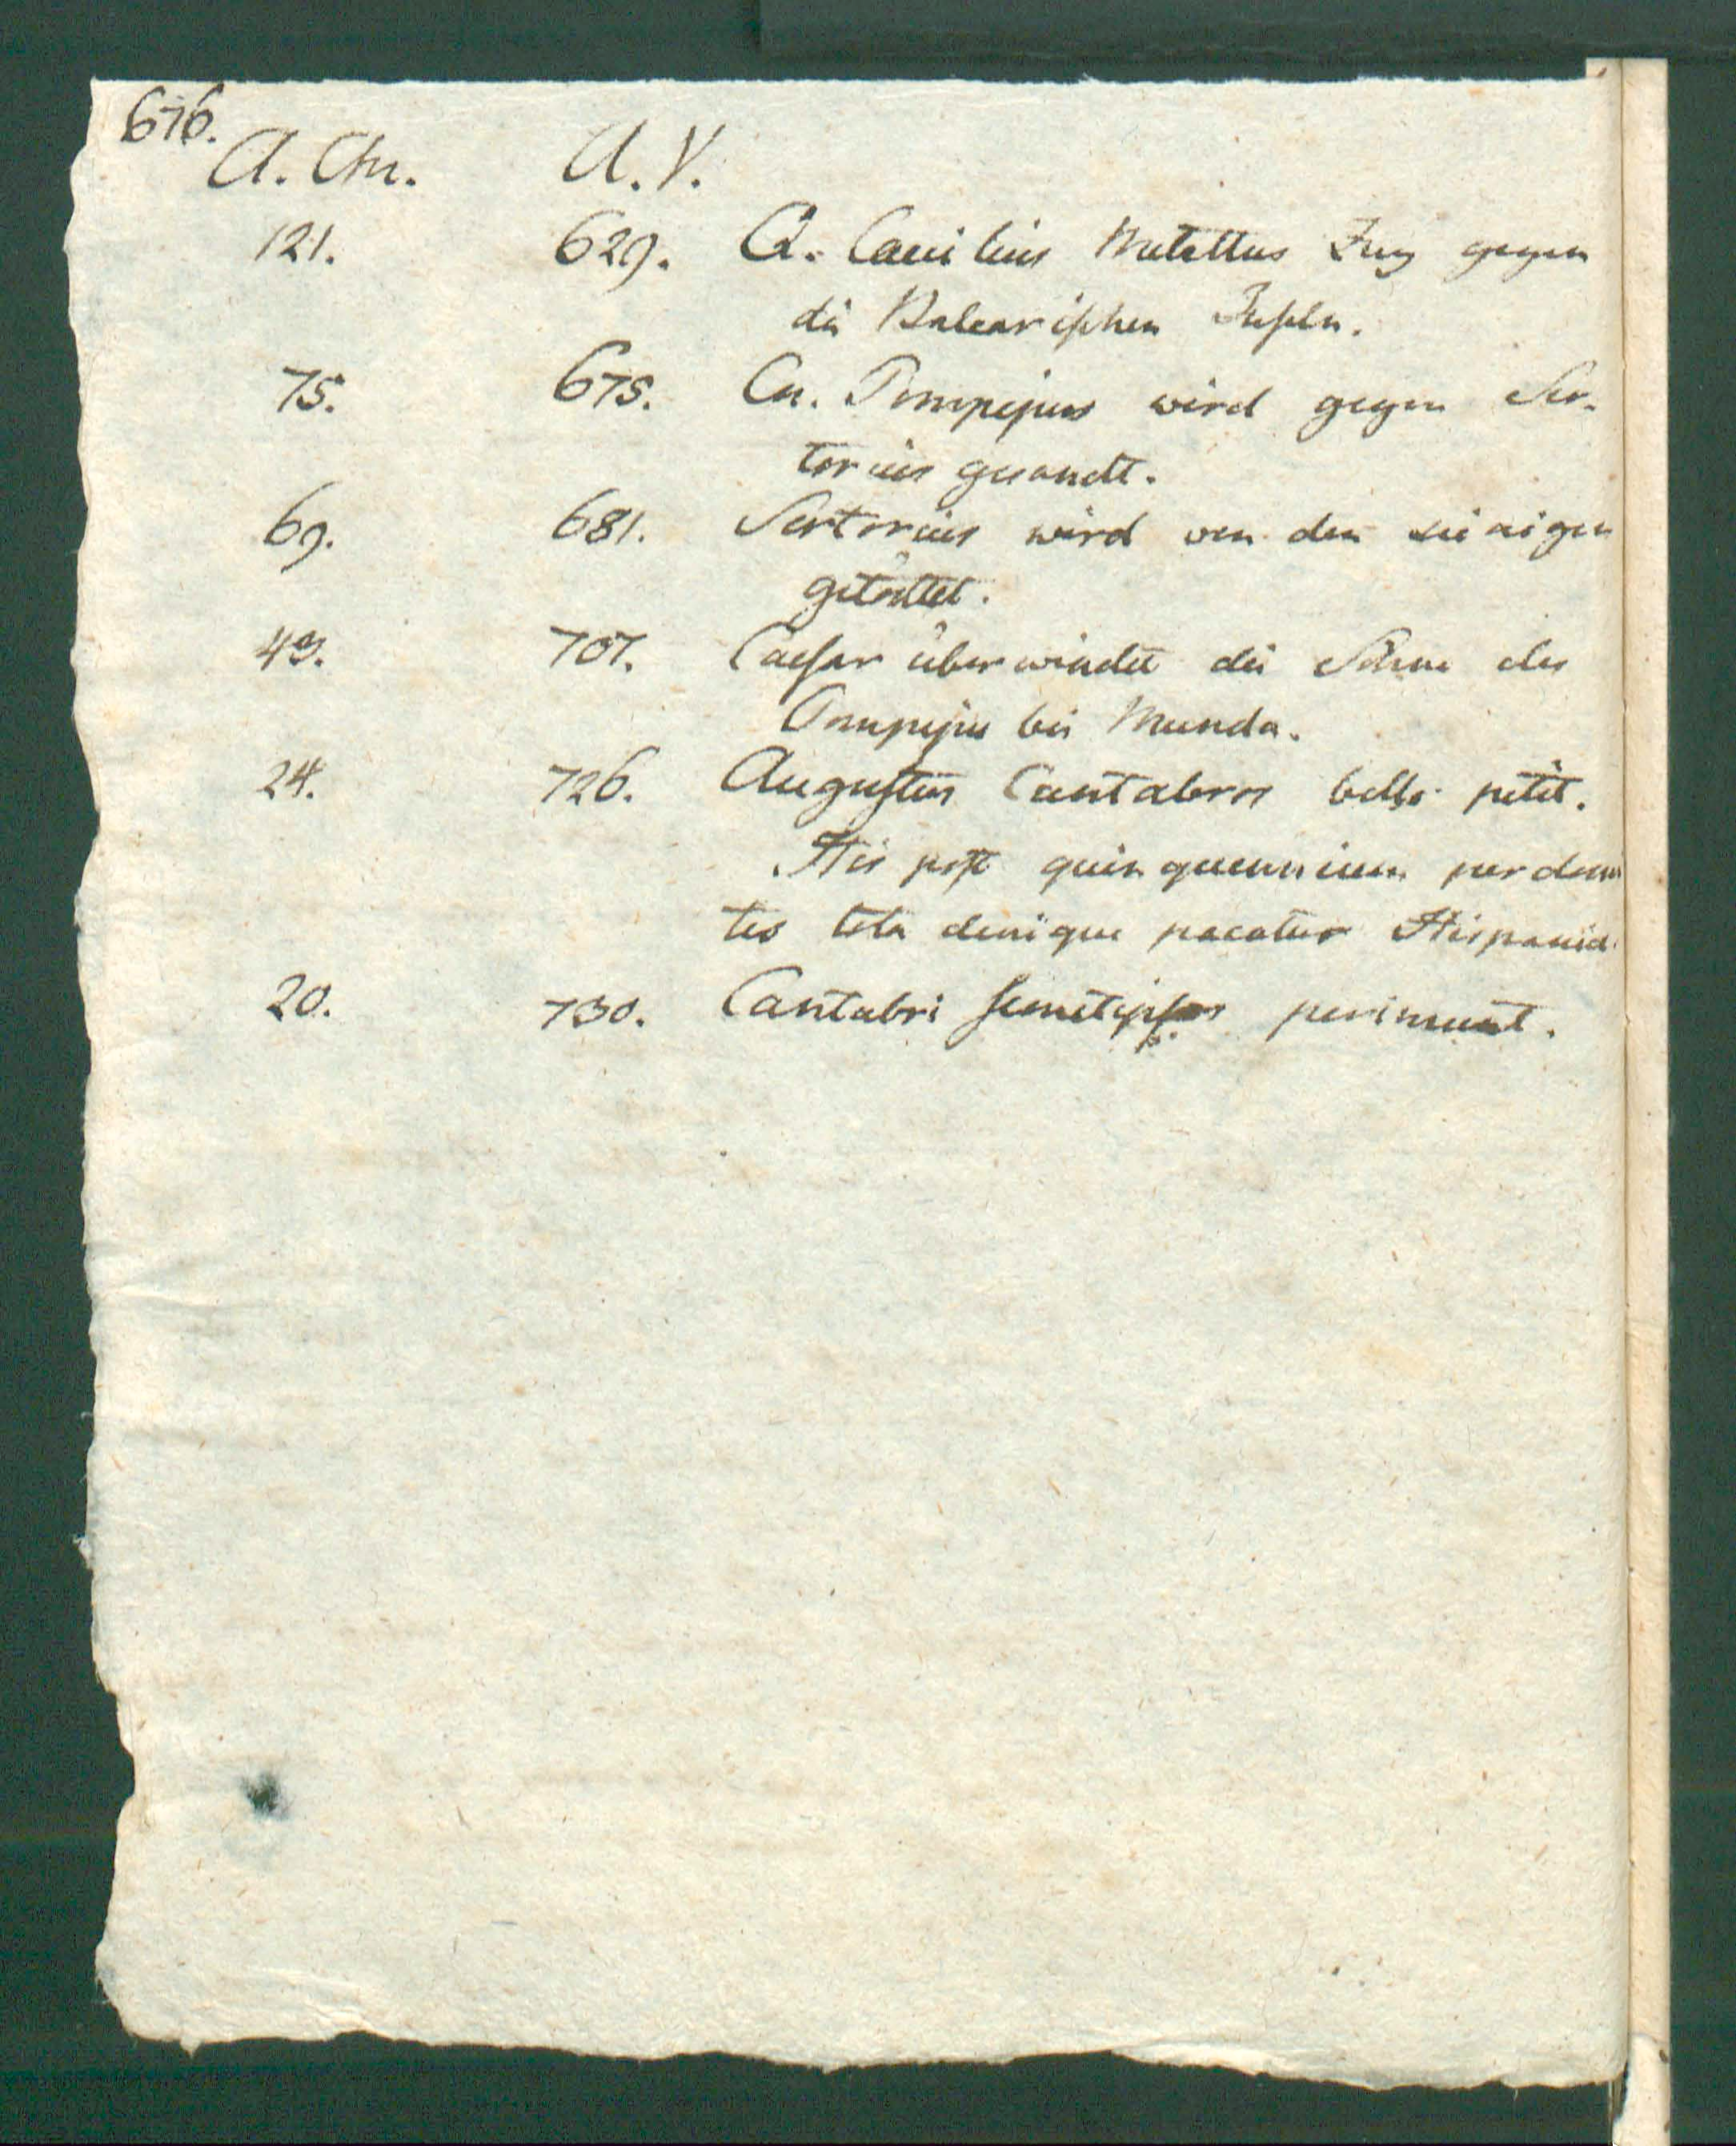 676.
A. Chr. A. V.
121. 629. Q. Caecilius Metellus Zug gegen
die Balearischen Inseln.
75. 675. Cn. Pompejus wird gegen Ser-
torius gesandt.
69. 681. Sertorius wird von den seinigen
getödtet.
43. 707. Caesar überwindet die Söhne des
Pompejus bei Munda.
24. 726. Augustus Cantabros bello petit.
His post quinquennium perdomi
tis tota denique pacatur Hispania.
20. 730. Cantabri semetipsos perimunt.